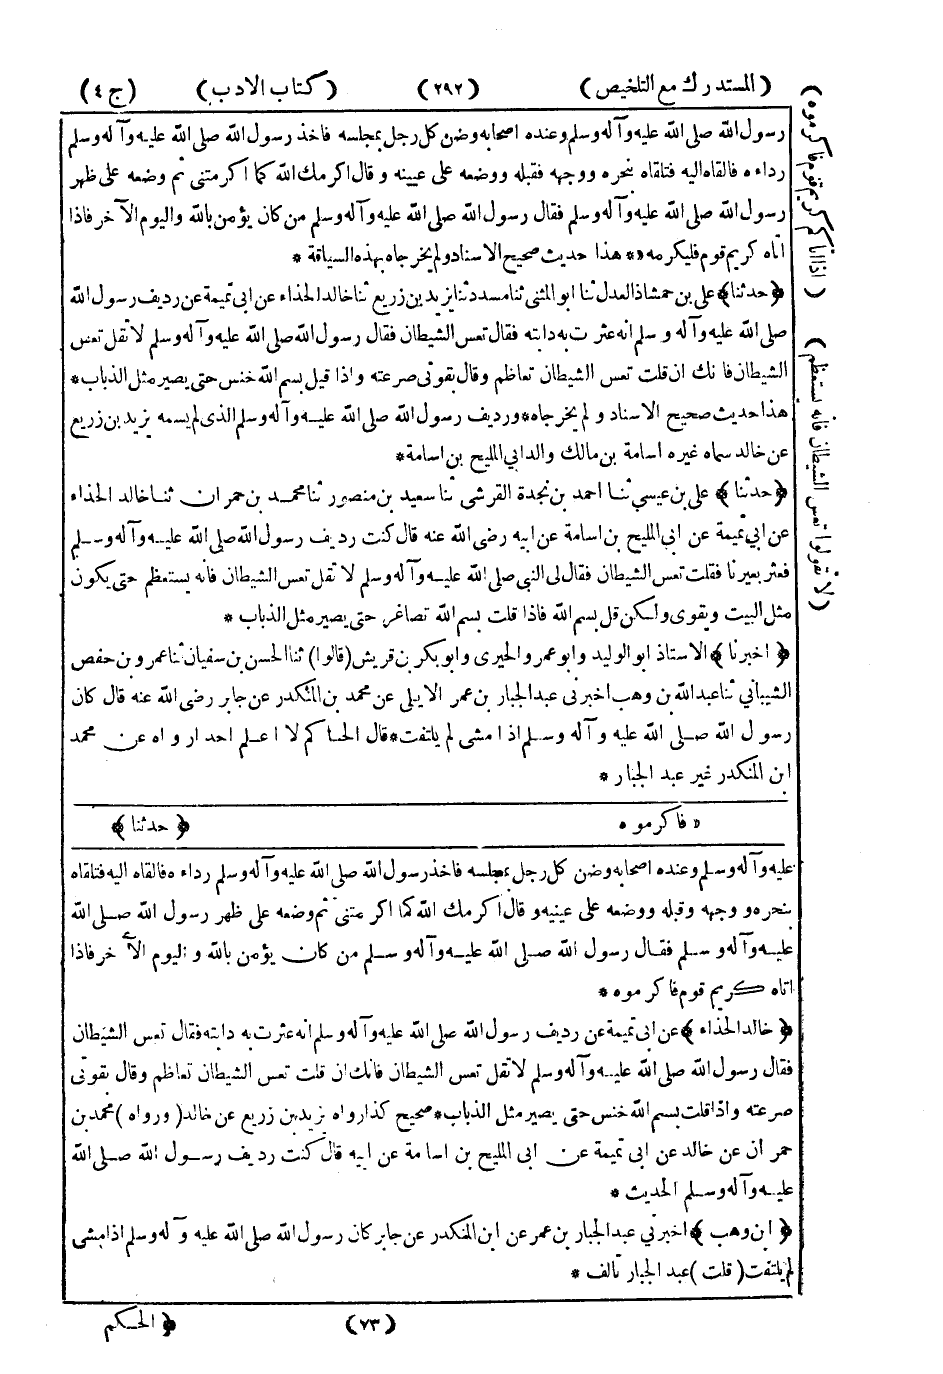 (المستدرك مع التلخيص) (٢٩٢) (كتاب الادب) (ج ٤)
رسول الله صلى الله عليه وآله وسلم وعنده اصحابه وضن كل رجل بمجلسه فاخذ رسول الله صلى الله عليه وآله وسلم
رداءه فالقاه اليه فتلقاه بنحره ووجهه فقبله ووضعه على عينيه وقال اكرمك الله كما اكرمتنى ثم وضعه على ظهر
رسول الله صلى الله عليه وآله وسلم فقال رسول الله صلى الله عليه وآله وسلم من كان يؤمن بالله واليوم الآخر فاذا
اتاه كريم قوم فليكرمه «* هذا حديث صحيح الاسناد ولم يخرجاه بهذه السياقة *
﴿حدثنا﴾ على بن حمشاذ العدل ثنا ابو المثنى ثنا مسدد ثنا يزيد بن زريع ثنا خالد الحذاء عن ابى تميمة عن رديف رسول الله
صلى الله عليه وآله وسلم انه عثرت به دابته فقال تعس الشيطان فقال رسول الله صلى الله عليه وآله وسلم لا تقل تعس
الشيطان فانك ان قلت تعس الشيطان تعاظم وقال بقوتى صرعته واذا قيل بسم الله خنس حتى يصير مثل الذباب *
هذا حديث صحيح الاسناد ولم يخرجاه * ورديف رسول الله صلى الله عليه وآله وسلم الذى لم يسمه يزيد بن زريع
عن خالد سماه غيره اسامة بن مالك والد ابى المليح بن اسامة *
﴿حدثنا﴾ على بن عيسى ثنا احمد بن نجدة القرشى ثنا سعيد بن منصور ثنا محمد بن حمران ثنا خالد الحذاء
عن ابى تميمة عن ابى المليح بن اسامة عن ابيه رضى الله عنه قال كنت رديف رسول الله صلى الله عليه وآله وسلم
فعثر بعيرنا فقلت تعس الشيطان فقال لى النبى صلى الله عليه وآله وسلم لا تقل تعس الشيطان فانه يستعظم حتى يكون
مثل البيت ويقوى ولكن قل بسم الله فاذا قلت بسم الله تصاغر حتى يصير مثل الذباب *
﴿اخبرنا﴾ الاستاذ ابو الوليد وابو عمرو الحيرى وابو بكر بن قريش (قالوا) ثنا الحسن بن سفيان ثنا عمرو بن حفص
الشيبانى ثنا عبد الله بن وهب اخبرنى عبد الجبار بن عمر الايلى عن محمد بن المنكدر عن جابر رضى الله عنه قال كان
رسول الله صلى الله عليه وآله وسلم اذا مشى لم يلتفت * قال الحاكم لا اعلم احدا رواه عن محمد
ابن المنكدر غير عبد الجبار *
«فاكرموه ﴿حدثنا﴾
عليه وآله وسلم وعنده اصحابه وضن كل رجل بمجلسه فاخذ رسول الله صلى الله عليه وآله وسلم رداءه فالقاه اليه فتلقاه
بنحره ووجهه وقبله ووضعه على عينيه وقال اكرمك الله كما اكرمتنى ثم وضعه على ظهر رسول الله صلى الله
عليه وآله وسلم فقال رسول الله صلى الله عليه وآله وسلم من كان يؤمن بالله واليوم الآخر فاذا
اتاه كريم قوم فاكرموه *
﴿خالد الحذاء﴾ عن ابى تميمة عن رديف رسول الله صلى الله عليه وآله وسلم انه عثرت به دابته فقال تعس الشيطان
فقال رسول الله صلى الله عليه وآله وسلم لا تقل تعس الشيطان فانك ان قلت تعس الشيطان تعاظم وقال بقوتى
صرعته واذا قلت بسم الله خنس حتى يصير مثل الذباب * صحيح كذا رواه يزيد بن زريع عن خالد (ورواه) محمد بن
حمران عن خالد عن ابى تميمة عن ابى المليح بن اسامة عن ابيه قال كنت رديف رسول الله صلى الله
عليه وآله وسلم الحديث *
﴿ابن وهب﴾ اخبرنى عبد الجبار بن عمر عن ابن المنكدر عن جابر كان رسول الله صلى الله عليه وآله وسلم اذا مشى
لم يلتفت (قلت) عبد الجبار تالف *
(٧٣) ﴿الحكم
(اذا اتاكم كريم قوم فاكرموه)
(لا تقولوا تعس الشيطان فانه يستعظم)